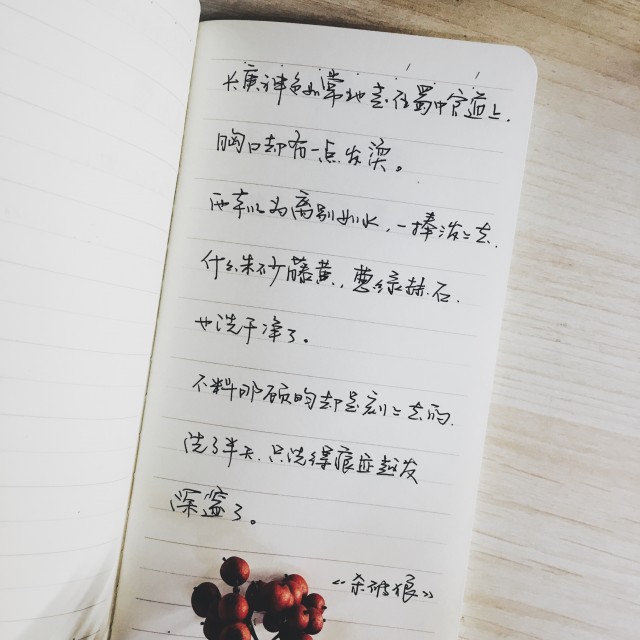 长庚神色如常地走在蜀中官道上,
胸口却有一点发烫。
以为离别如水,一捧泼上去,
什么朱砂藤黄,曹绿赭石,
也洗干净了。
不料那顾昀却是刻上去的,
洗了半天,只洗得痕迹越发
深邃了。
《杀破狼》